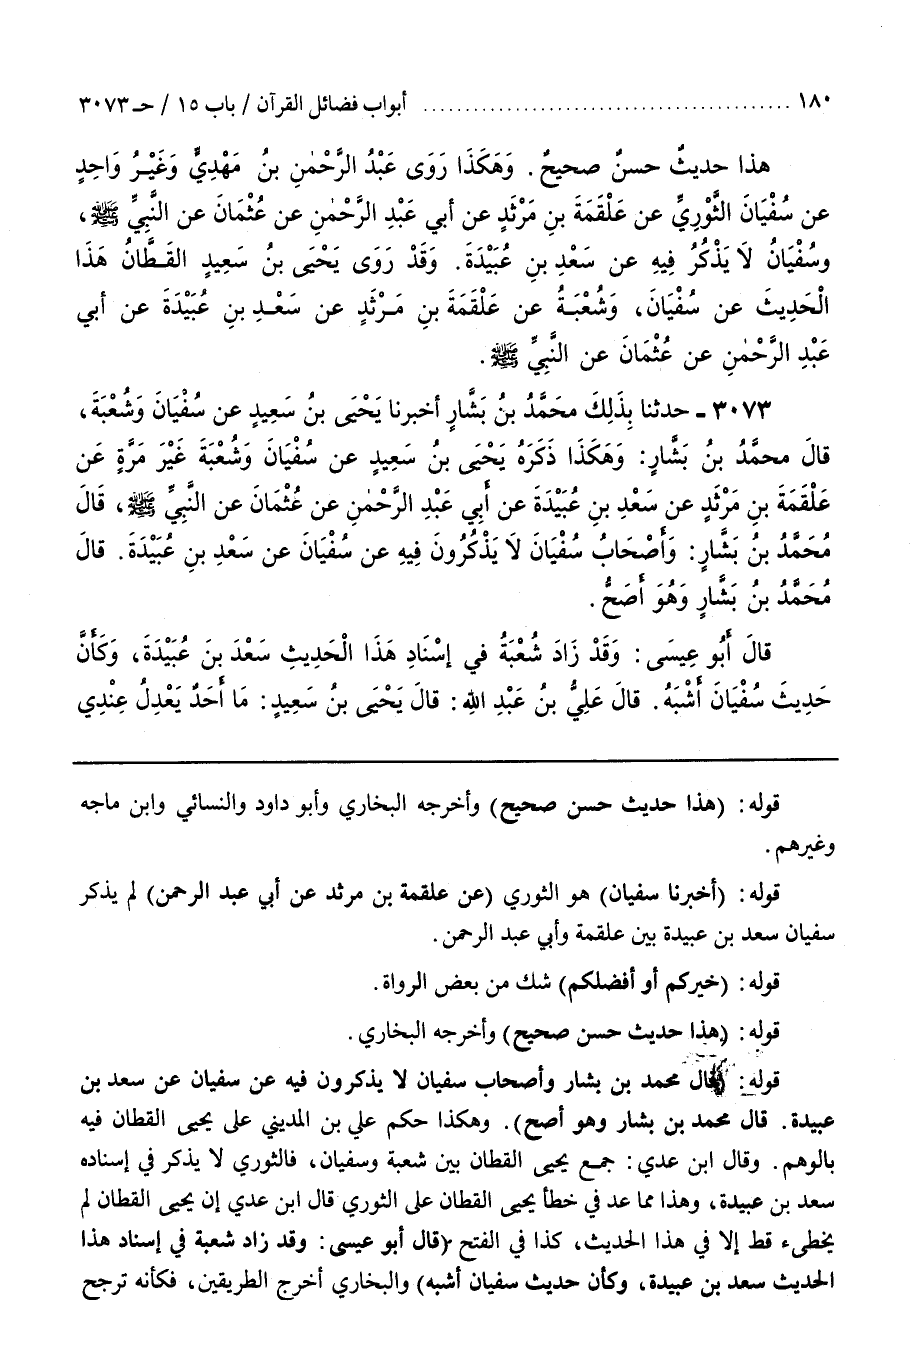 ١٨٠ ............................................ أبواب فضائل القرآن / باب ١٥ / حـ ٣٠٧٣
هذا حديثٌ حسنٌ صحيحٌ. وَهَكَذَا رَوَى عَبْدُ الرَّحْمٰنِ بنُ مَهْدِيٍّ وَغَيْـرُ وَاحِدٍ
عن سُفْيَانَ الثَّوْرِيِّ عن عَلْقَمَةَ بنِ مَرْثَدٍ عن أبي عَبْدِ الرَّحْمٰنِ عن عُثْمَانَ عن النَّبِيِّ ﷺ،
وسُفْيَانُ لَا يَذْكُرُ فِيهِ عن سَعْدِ بنِ عُبَيْدَةَ. وَقَدْ رَوَى يَحْيَى بنُ سَعِيدٍ القَـطَّانُ هَذَا
الْحَدِيثَ عن سُفْيَانَ، وَشُعْبَـةُ عن عَلْقَمَةَ بنِ مَـرْثَدٍ عن سَعْـدِ بنِ عُبَيْدَةَ عن أبي
عَبْدِ الرَّحْمٰنِ عن عُثْمَانَ عن النَّبِيِّ ﷺ.
٣٠٧٣ ـ حدثنا بِذَلِكَ محَمَّدُ بنُ بَشَّارٍ أخبرنا يَحْيَى بنُ سَعِيدٍ عن سُفْيَانَ وَشُعْبَةَ،
قالَ محمَّدُ بنُ بَشَّارٍ: وَهَكَذَا ذَكَرَهُ يَحْيَى بنُ سَعِيدٍ عن سُفْيَانَ وَشُعْبَةَ غَيْرَ مَرَّةٍ عن
عَلْقَمَةَ بنِ مَرْثَدٍ عن سَعْدِ بنِ عُبَيْدَةَ عن أَبِي عَبْدِ الرَّحْمٰنِ عن عُثْمَانَ عن النَّبِيِّ ﷺ، قَالَ
مُحَمَّدُ بنُ بَشَّارٍ: وَأَصْحَابُ سُفْيَانَ لَا يَذْكُرُونَ فِيهِ عن سُفْيَانَ عن سَعْدِ بنِ عُبَيْدَةَ. قالَ
مُحَمَّدُ بنُ بَشَّارٍ وَهُوَ أَصَحُّ.
قالَ أَبُو عِيسَى: وَقَدْ زَادَ شُعْبَةُ في إسْنَادِ هَذَا الْحَدِيثِ سَعْدَ بنَ عُبَيْدَةَ، وَكَأَنَّ
حَدِيثَ سُفْيَانَ أَشْبَهُ. قالَ عَلِيُّ بنُ عَبْدِ اللهِ: قالَ يَحْيَى بنُ سَعِيدٍ: مَا أَحَدٌ يَعْدِلُ عِنْدِي
قوله: (هذا حديث حسن صحيح) وأخرجه البخاري وأبو داود والنسائي وابن ماجه
وغيرهم.
قوله: (أخبرنا سفيان) هو الثوري (عن علقمة بن مرثد عن أبي عبد الرحمن) لم يذكر
سفيان سعد بن عبيدة بين علقمة وأبي عبد الرحمن.
قوله: (خيركم أو أفضلكم) شك من بعض الرواة.
قوله: (هذا حديث حسن صحيح) وأخرجه البخاري.
قوله: (قال محمد بن بشار وأصحاب سفيان لا يذكرون فيه عن سفيان عن سعد بن
عبيدة. قال محمد بن بشار وهو أصح). وهكذا حكم علي بن المديني على يحيى القطان فيه
بالوهم. وقال ابن عدي: جمع يحيى القطان بين شعبة وسفيان، فالثوري لا يذكر في إسناده
سعد بن عبيدة، وهذا مما عد في خطأ يحيى القطان على الثوري قال ابن عدي إن يحيى القطان لم
يخطىء قط إلا في هذا الحديث، كذا في الفتح (قال أبو عيسى: وقد زاد شعبة في إسناد هذا
الحديث سعد بن عبيدة، وكأن حديث سفيان أشبه) والبخاري أخرج الطريقين، فكأنه ترجح